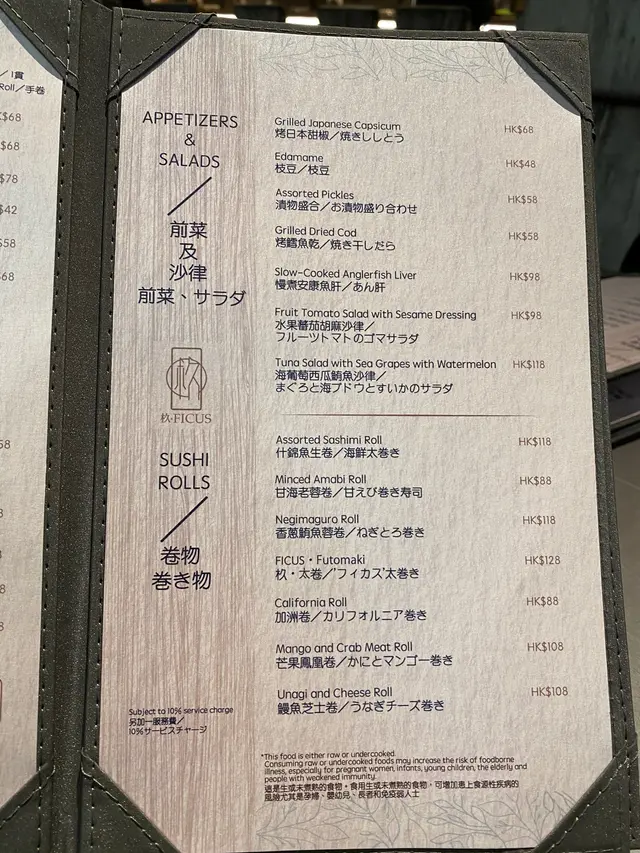 ／1貫
Roll／手巻
$68
$68
$78
$42
$58
$68
APPETIZERS
&
SALADS
前菜
及
沙律
前菜、サラダ
杦·FICUS
SUSHI
ROLLS
卷物
巻き物
Subject to 10% service charge
另加一服務費／
10%サービスチャージ
Grilled Japanese Capsicum HK$68
烤日本甜椒／焼きししとう
Edamame HK$48
枝豆／枝豆
Assorted Pickles HK$58
漬物盛合／お漬物盛り合わせ
Grilled Dried Cod HK$58
烤鱈魚乾／焼き干しだら
Slow-Cooked Anglerfish Liver HK$98
慢煮安康魚肝／あん肝
Fruit Tomato Salad with Sesame Dressing HK$98
水果蕃茄胡麻沙律／
フルーツトマトのゴマサラダ
Tuna Salad with Sea Grapes with Watermelon HK$118
海葡萄西瓜鮪魚沙律／
まぐろと海ブドウとすいかのサラダ
Assorted Sashimi Roll HK$118
什錦魚生卷／海鮮太巻き
Minced Amabi Roll HK$88
甘海老蓉卷／甘えび巻き寿司
Negimaguro Roll HK$118
香蔥鮪魚蓉卷／ねぎとろ巻き
FICUS·Futomaki HK$128
杦·太卷／'フィカス'太巻き
California Roll HK$88
加洲卷／カリフォルニア巻き
Mango and Crab Meat Roll HK$108
芒果鳳凰卷／かにとマンゴー巻き
Unagi and Cheese Roll HK$108
鰻魚芝士卷／うなぎチーズ巻き
*This food is either raw or undercooked.
Consuming raw or undercooked foods may increase the risk of foodborne
illness, especially for pregnant women, infants, young children, the elderly and
people with weakened immunity.
這是生或未煮熟的食物。食用生或未煮熟的食物，可增加患上食源性疾病的
風險尤其是孕婦、嬰幼兒、長者和免疫弱人士